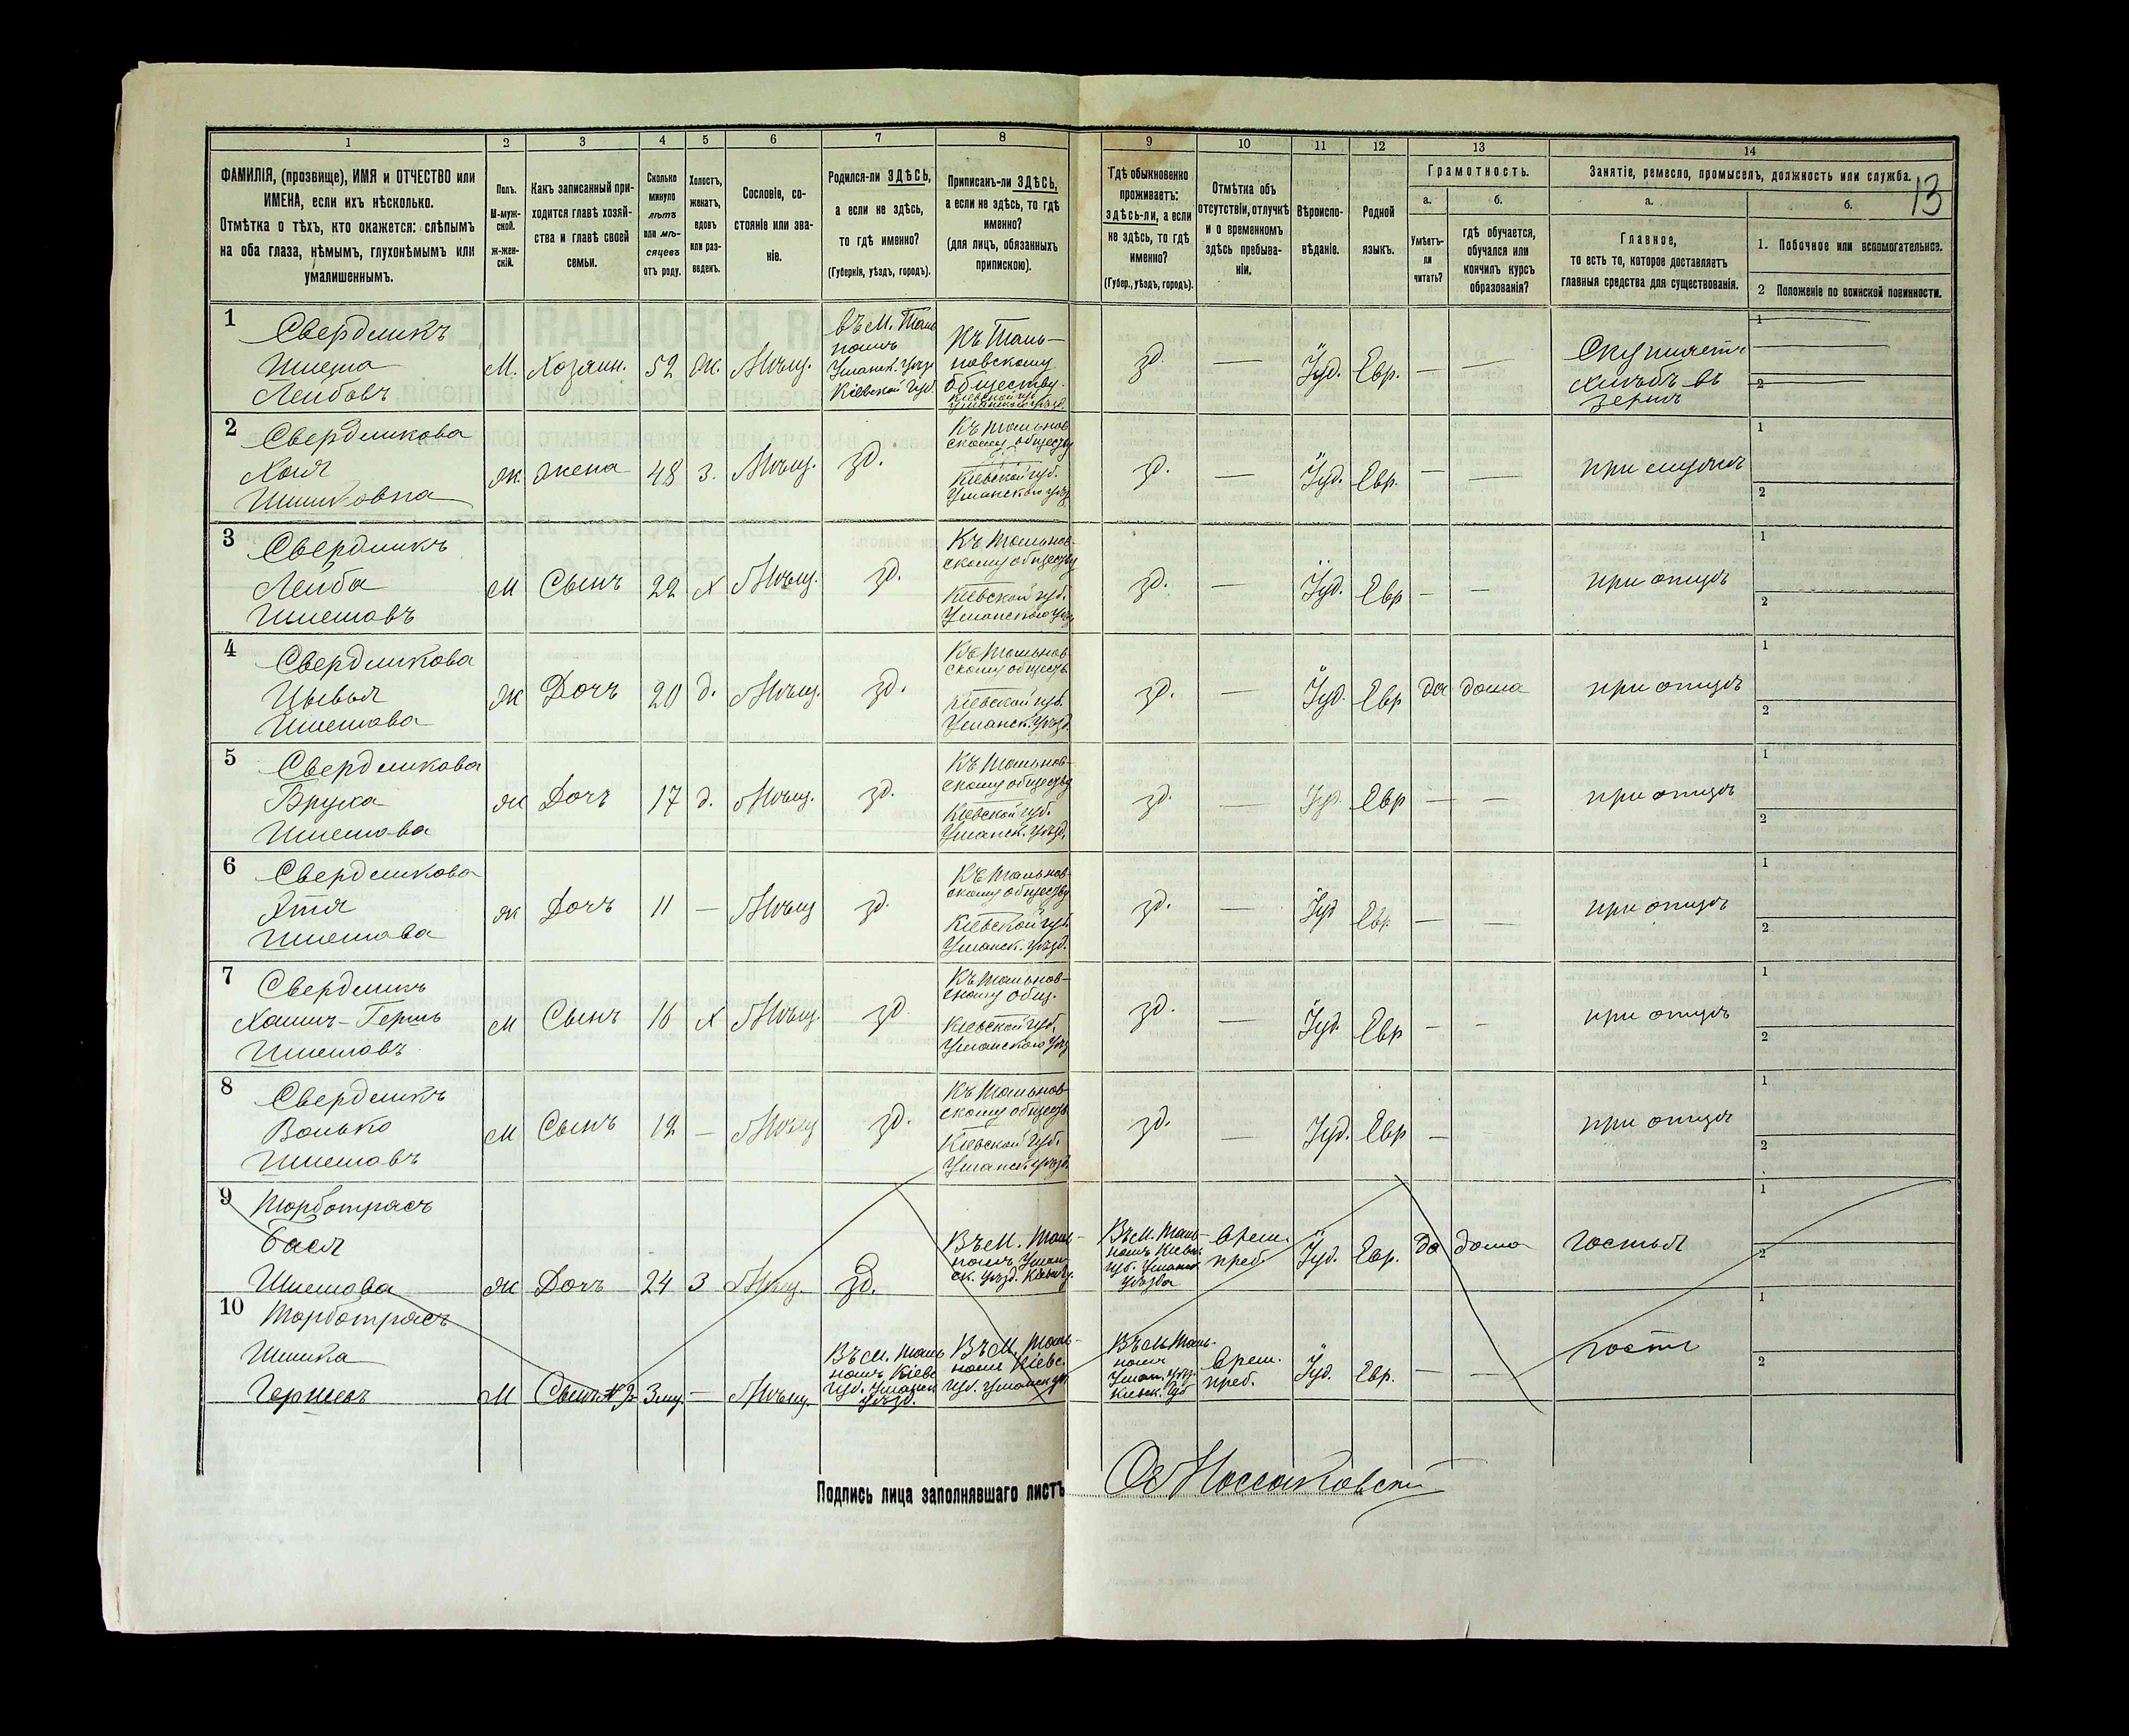 1 2 3 4 5 6 7 8 9 10 11 12 13 14
ФАМИЛІЯ, (прозвище), ИМЯ и ОТЧЕСТВО или
ИМЕНА, если ихъ нѣсколько.
Отмѣтка о тѣхъ, кто окажется: слѣпымъ
на оба глаза, нѣмымъ, глухонѣмымъ или
умалишеннымъ.
Полъ.
М-муж-
ской.
ж-жен-
скій.
Какъ записанный при-
ходится главѣ хозяй-
ства и главѣ своей
семьи.
Сколько
минуло
лѣтъ
или мѣ-
сяцевъ
отъ роду.
Холостъ,
женатъ,
вдовъ
или раз-
веденъ.
Сословіе, со-
стояніе или зва-
ніе.
Родился-ли ЗДѢСЬ,
а если не здѣсь,
то гдѣ именно?
(Губернія, уѣздъ, городъ).
Приписанъ-ли ЗДѢСЬ,
а если не здѣсь, то гдѣ
именно?
(для лицъ, обязанныхъ
припискою).
Гдѣ обыкновенно
проживаетъ:
здѣсь-ли, а если
не здѣсь, то гдѣ
именно?
(Губер., уѣздъ, городъ).
Отмѣтка объ
отсутствіи, отлучкѣ
и о временномъ
здѣсь пребыва-
ніи.
Вѣроиспо-
вѣданіе.
Родной
языкъ.
Грамотность.
а.
Умѣетъ-
ли
читать?
б.
гдѣ обучается,
обучался или
кончилъ курсъ
образованія?
Занятіе, ремесло, промыселъ, должность или служба.
13
а.
Главное,
то есть то, которое доставляетъ
главныя средства для существованія.
б.
1. Побочное или вспомогательное.
2 Положеніе по воинской повинности.
1
Свердликъ
Лейбовъ
М. Хозяин. 52 Ж. Мѣщ.
въ м. Таль
номъ
Уманск. уѣзд.
Кіевской губ.
Къ Таль-
новскому
обществу.
Кіевской губ.
Уманского уѣзд.
зд. — Іуд. Евр. — —
Скупкает
хлѣбъ въ
зернѣ
1
2
2
Свердликова
Хая
Шмиковна
ж. жена 48 з. Мѣщ. зд.
Къ тальнов
скому обществу
Кіевской губ.
Уманского уѣзд
зд. — Іуд. Евр. — —
при мужѣ
1
2
3
Свердликъ
Лейба
М Сынъ 22 х Мѣщ. зд.
Къ тальнов-
скому обществу
Кіевской губ.
Уманского уѣзд
зд. — Іуд. Евр — —
при отцѣ
1
2
4
Свердликова
Цывья
ж Дочь 20 д. Мѣщ. зд.
Къ тальнов
скому обществ
Кіевской губ.
Уманск. уѣзд.
зд. — Іуд. Евр да дома
при отцѣ
1
2
5
Свердликова
Бруха
ж Дочь 17 д. Мѣщ. зд.
Къ тальнов-
скому обществу
Кіевской губ.
Уманск. уѣзд.
зд. — Іуд. Евр — —
при отцѣ
1
2
6
Свердликова
ж Дочь 11 — Мѣщ зд.
Къ тальнов-
скому обществу
Кіевской губ.
Уманск. уѣзд.
зд. — Іуд Евр. — —
при отцѣ
1
2
7
Свердликъ
Гершь
М Сынъ 16 х Мѣщ. зд
Къ тальнов-
скому общ.
Кіевской губ.
Уманского уѣзд
зд. — Іуд. Евр — —
при отцѣ
1
2
8
Свердликъ
Волько
М Сынъ 12 — Мѣщ зд.
Къ тальнов-
скому обществ
Кіевской губ.
Уманск уѣзд.
зд. — Іуд. Евр —
при отцѣ
1
2
9
Торботрясъ
Бася
ж Дочь 24 З Мѣщ. зд.
Въ м. Таль-
номъ Уман
ск. уѣзд. Кіевс. г.
Въ м. Таль-
номъ Кіевск
губ. Уманск
уѣзда
врем.
преб.
Іуд. Евр. да дома
гостья
1
2
10
Торботрясъ
Шмика
М Сынъ № 9 3 м. — Мѣщ.
Въ м. Таль
номъ Кіевс
губ. Уманск
уѣзд.
Въ м. Таль-
номъ Кіевс.
губ. Уманск уѣз
Въ м Таль-
номъ
Уман. уѣзд.
Кіевск. губ
врем.
преб.
Іуд. Евр. — —
гость
1
2
Подпись лица заполнявшаго листъ